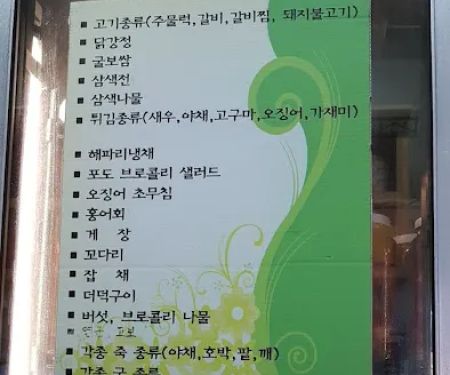 ▪ 고기종류(주물럭,갈비,갈비찜, 돼지불고기)
▪ 닭강정
▪ 굴보쌈
▪ 삼색전
▪ 삼색나물
▪ 튀김종류(새우,야채,고구마,오징어,가재미)
▪ 해파리냉채
▪ 포도 브로콜리 샐러드
▪ 오징어 초무침
▪ 홍어회
▪ 게 장
▪ 꼬다리
▪ 잡 채
▪ 더덕구이
▪ 버섯, 브로콜리 나물
▪ 각종 죽 종류(야채,호박,팥,깨)
▪ 각종 국 종류